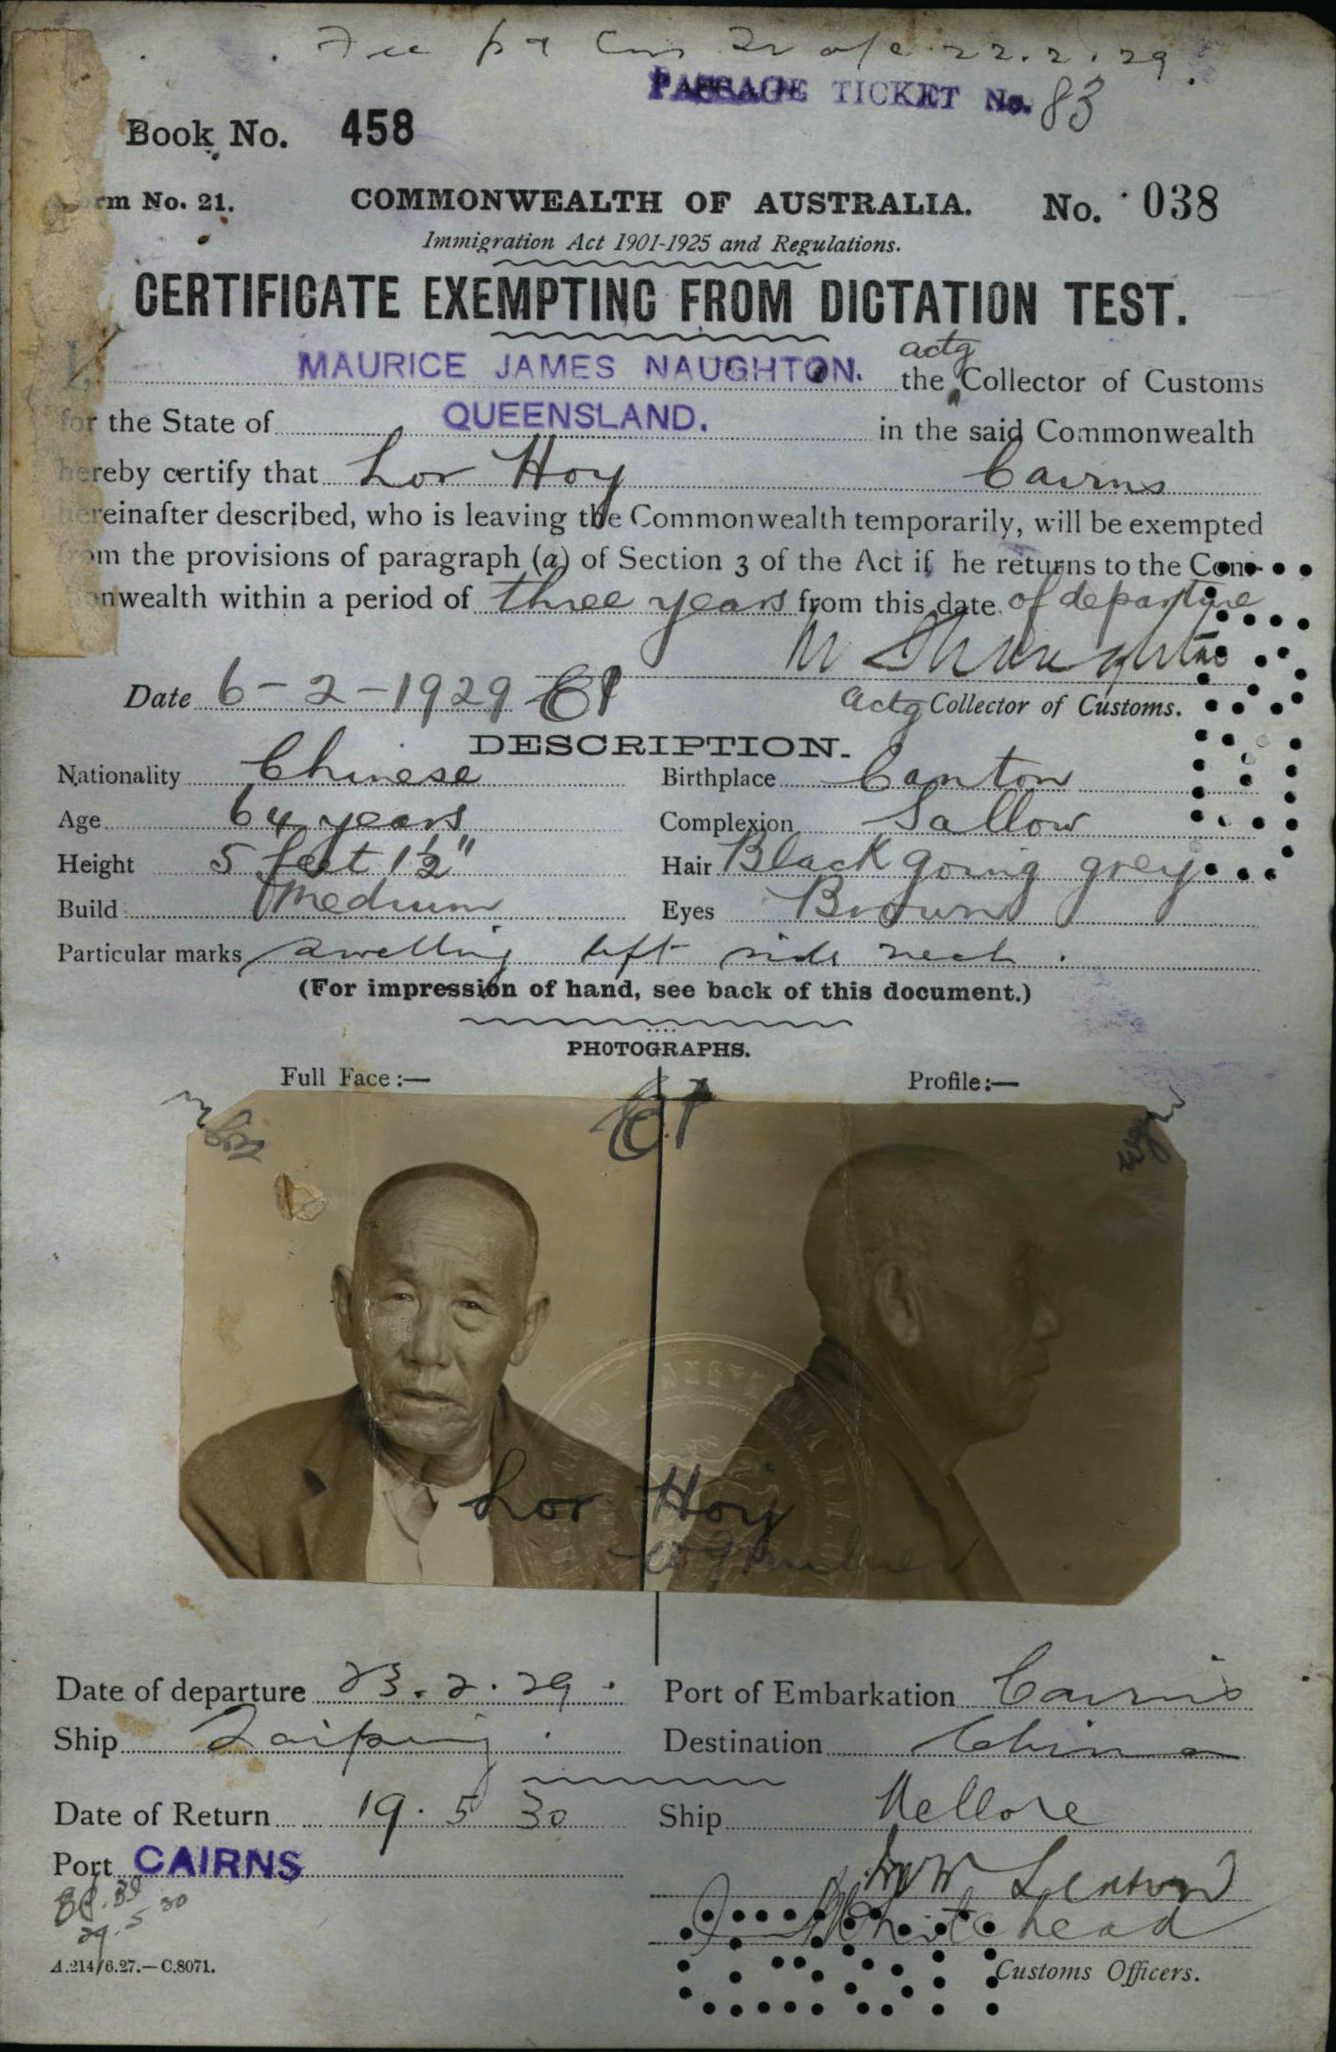 Fee pd Cns 22.2.29.
PASSAGE TICKET No. 83
Book No. 458
rm No. 21. COMMONWEALTH OF AUSTRALIA. No. 038
Immigration Act 1901-1925 and Regulations.
CERTIFICATE EXEMPTING FROM DICTATION TEST.
I, MAURICE JAMES NAUGHTON. the actg Collector of Customs
for the State of QUEENSLAND. in the said Commonwealth
hereby certify that Lor Hoy Cairns
hereinafter described, who is leaving the Commonwealth temporarily, will be exempted
from the provisions of paragraph (a) of Section 3 of the Act if he returns to the Com-
monwealth within a period of three years from this date of departure
Date 6-2-1929 actg Collector of Customs.
DESCRIPTION.
Nationality Chinese Birthplace Canton
Age 64 years Complexion Sallow
Height 5 feet 1½" Hair Black going grey
Build Medium Eyes Brown
Particular marks swelling left side neck.
(For impression of hand, see back of this document.)
PHOTOGRAPHS.
Full Face:— Profile:—
Lor Hoy
Date of departure 23.2.29. Port of Embarkation Cairns
Ship Taiping. Destination China
Date of Return 19.5 30 Ship Nellore
Port CAIRNS
29.5 30
Whitehead
A.214/6.27.—C.8071. Customs Officers.